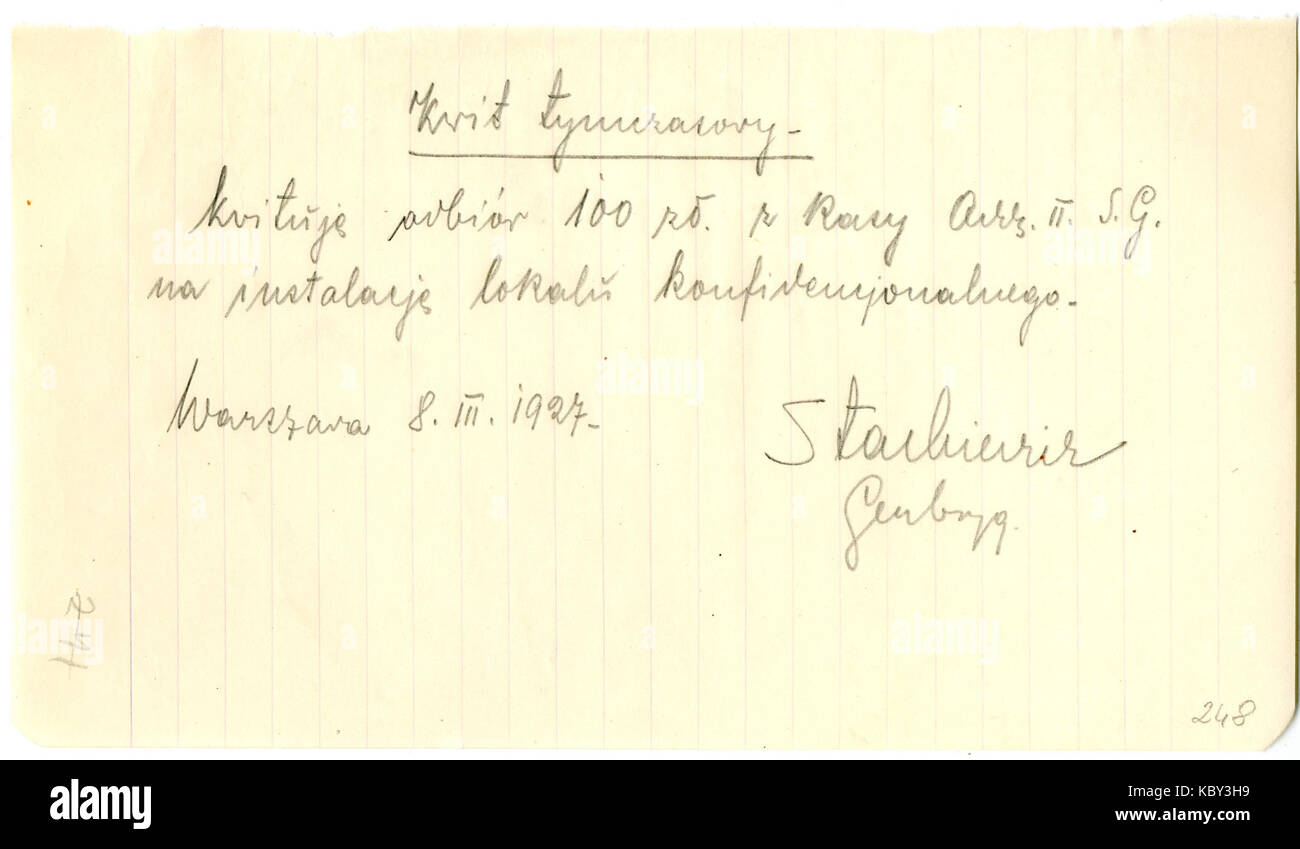 Kwit tymczasowy -
Kwituję odbiór 100 zł. z kasy Odz. II. S.G.
na instalację lokalu konfidencjonalnego. -
Warszawa 8. III. 1927. -
Stachiewicz
Genbryg.
247
248
alamy
Image ID: KBY3H9
www.alamy.com